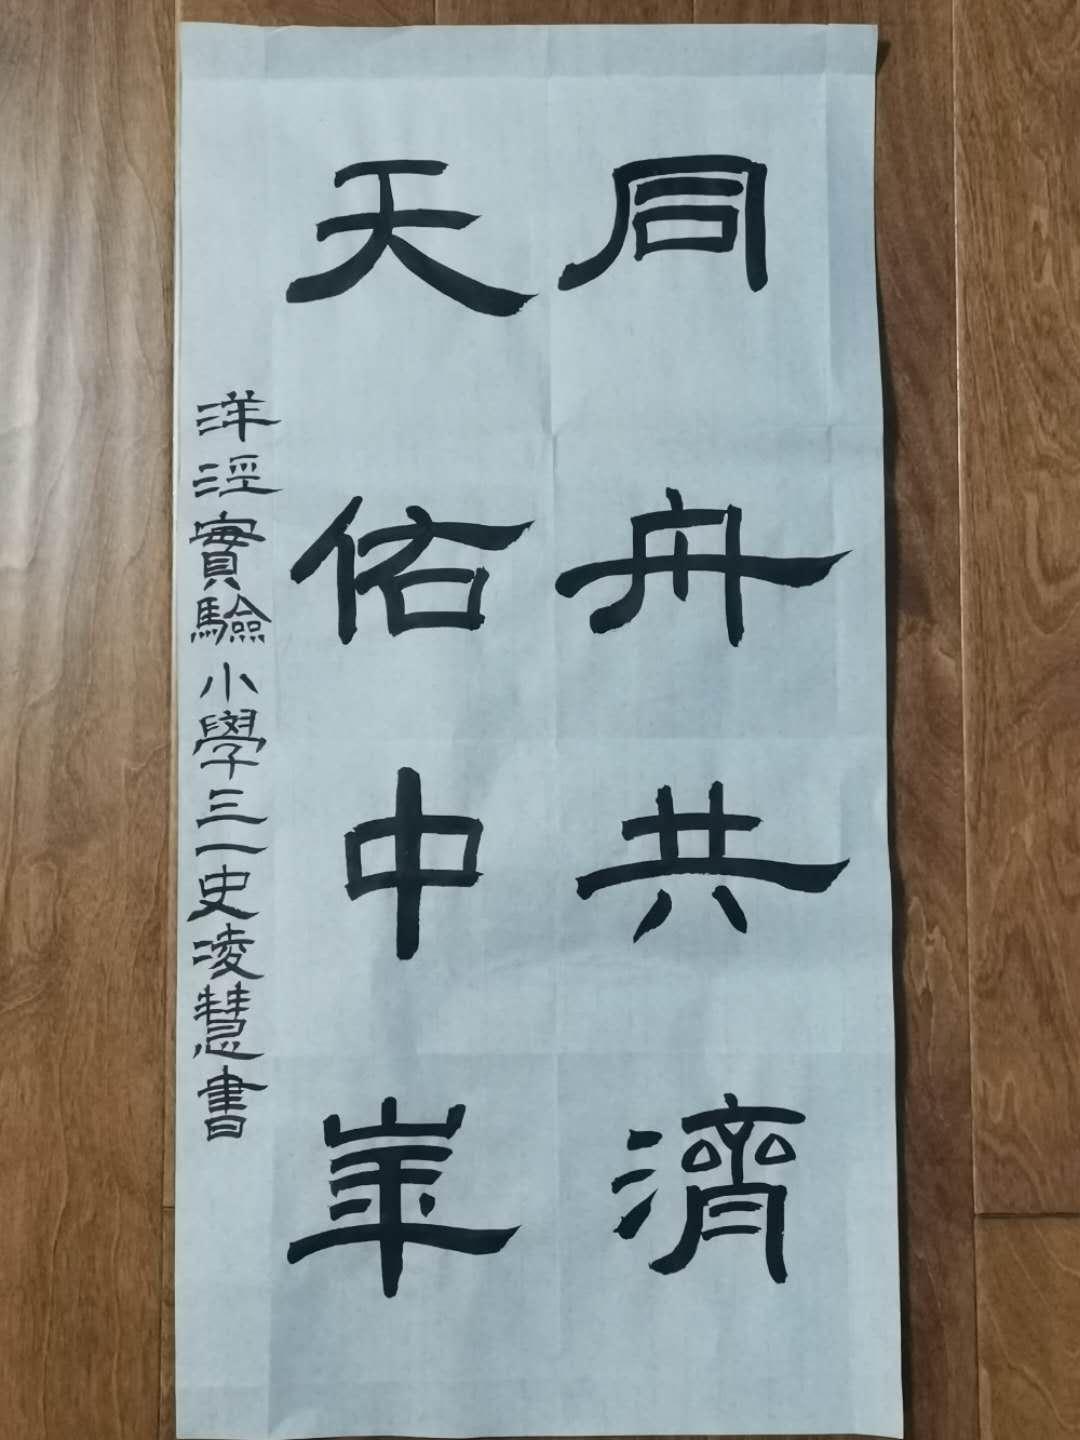 同舟共濟
天佑中華
洋涇實驗小學三一史凌慧書